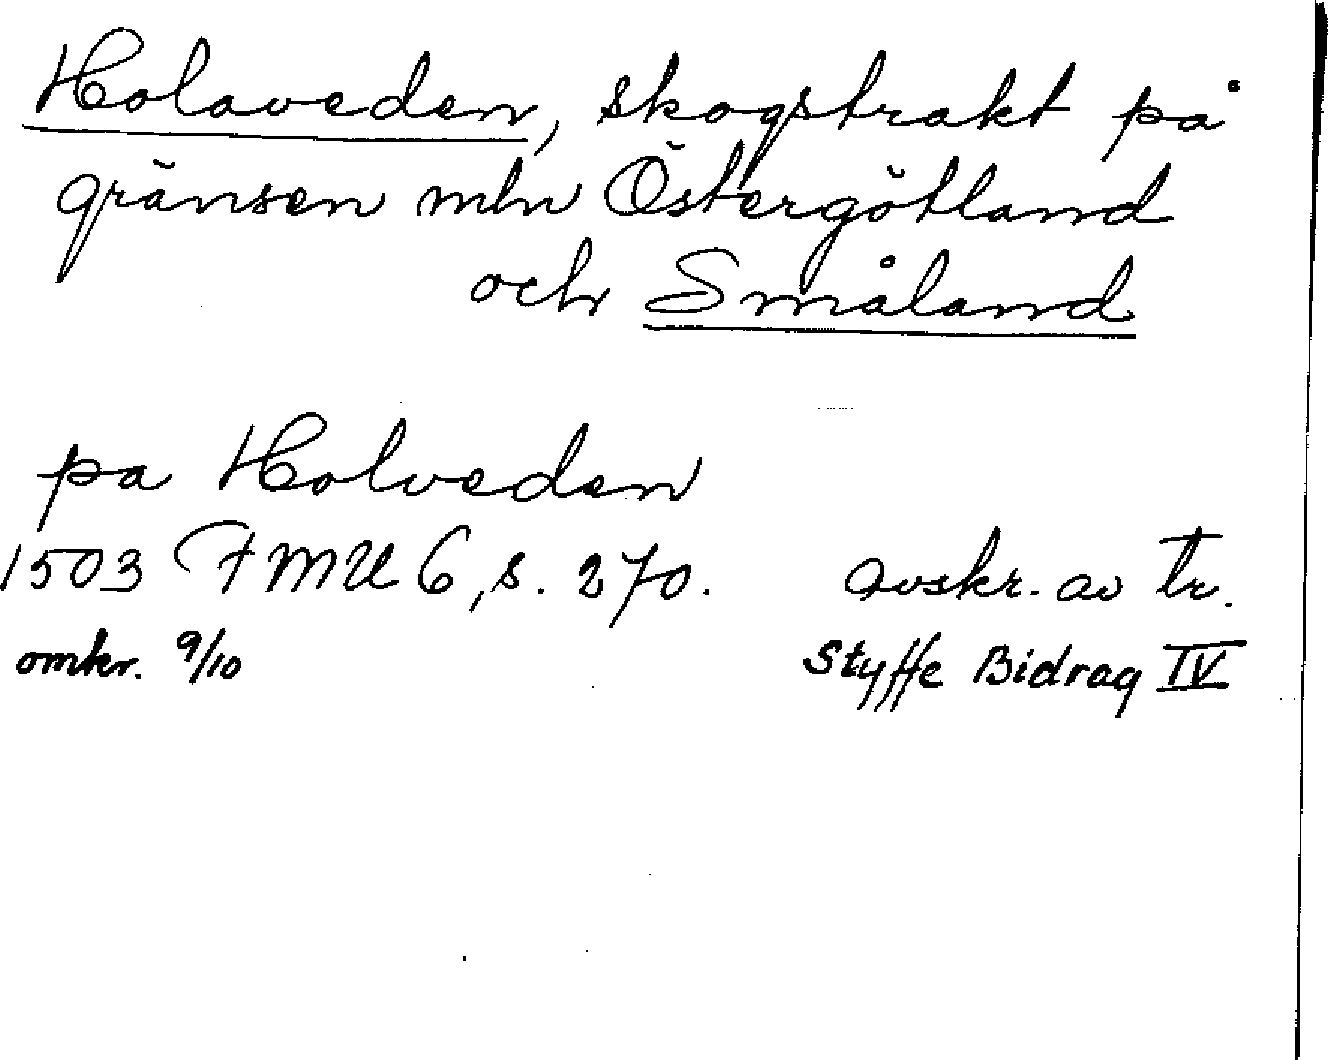 Holaveden, skogstrakt på
gränsen mln Östergötland
och Småland
pa Holveden
1503 FMU 6, s. 270. avskr. av tr.
omkr. 9/10 Styffe Bidrag IV